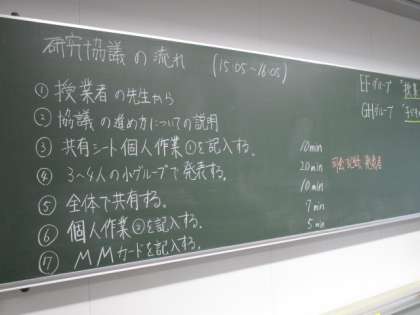 研究協議の流れ (15:05～16:05)
① 授業者の先生から
② 協議の進め方についての説明
③ 共有シート個人作業①を記入する。 10min
④ 3～4人の小グループで発表する。 20min 司会、記録、発表者
⑤ 全体で共有する。 10min
⑥ 個人作業②を記入する。 7min
⑦ MMカードを記入する。 5min
EFグループ
GHグループ